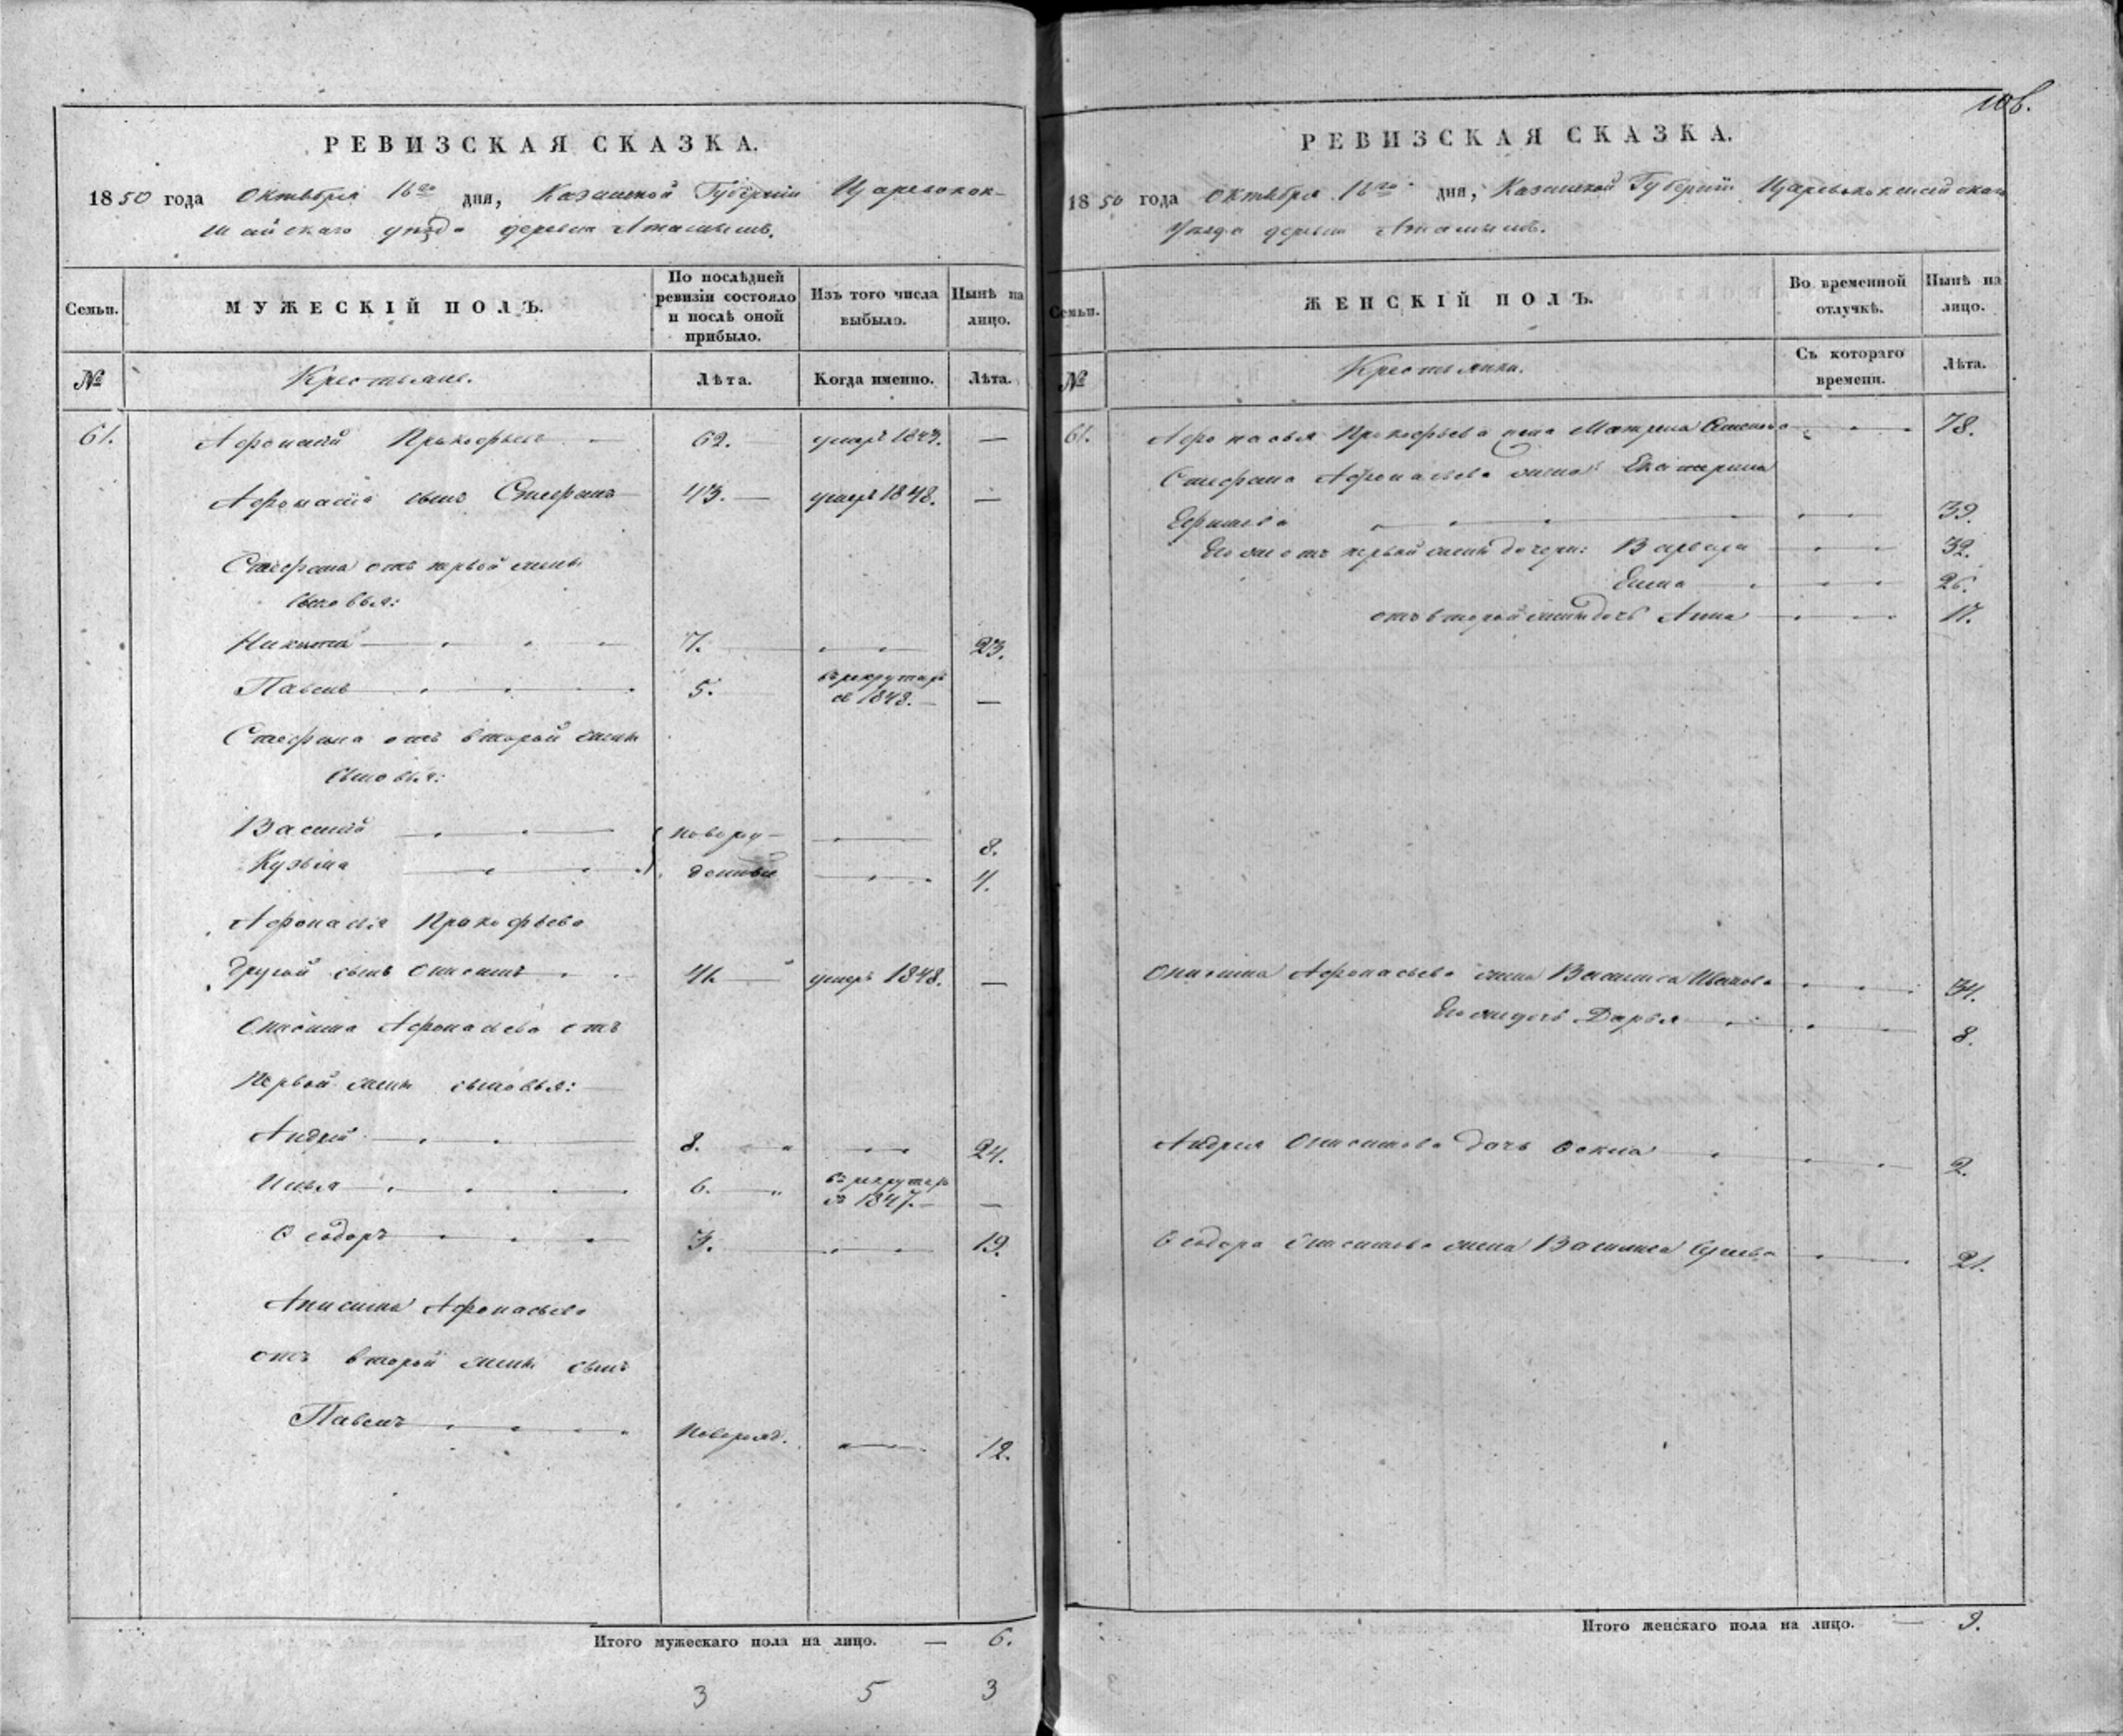 РЕВИЗСКАЯ СКАЗКА.
1850 года Октября 16го дня, Казанской Губернiи Царевокок-
шайскаго уѣзда деревни
Семьи.
МУЖЕСКIЙ ПОЛЪ.
По послѣдней ревизiи состояло и послѣ оной прибыло.
Изъ того числа выбыло.
Нынѣ на лицо.
№
Крестьяне.
Лѣта.
Когда именно.
Лѣта.
61. Афонасiй Прокофьевъ 62. умеръ 1843. —
Афонасiя сынъ Стефанъ 43. умеръ 1848. —
Стефана отъ первой жены
сыновья:
Никита 7. 23.
Павелъ 5. въ рекрутахъ
съ 1843. —
Стефана отъ второй жены
сыновья:
Василiй новорож- 8.
Кузьма денные 4.
Афонасiя Прокофьева
другой сынъ Онисимъ 41. умеръ 1848. —
Онисима Афонасьева отъ
первой жены сыновья:
Андрей 8. 24.
Илья 6. въ рекрутахъ
съ 1847. —
Ѳеодоръ 3. 19.
Анисима Афонасьева
отъ второй жены сынъ
Павелъ новорожд. 12.
Итого мужескаго пола на лицо. — 6.
3 5 3
106.
РЕВИЗСКАЯ СКАЗКА.
1850 года Октября 16го дня, Казанской Губернiи Царевококшайскаго
уѣзда деревни
Семьи.
ЖЕНСКIЙ ПОЛЪ.
Во временной отлучкѣ.
Нынѣ на лицо.
№
Крестьянки.
Съ котораго времени.
Лѣта.
61. Афонасья Прокофьева жена Матрена 78.
Стефана Афонасьева жена Екатерина
39.
Его же отъ первой жены дочери: Варвара 32.
26.
отъ второй жены дочь Анна 17.
Онисима Афонасьева жена Василиса Иванова 34.
Его же дочь Дарья 8.
Андрея Онисимова дочь 2.
Ѳеодора Онисимова жена Василиса 21.
Итого женскаго пола на лицо. — 9.